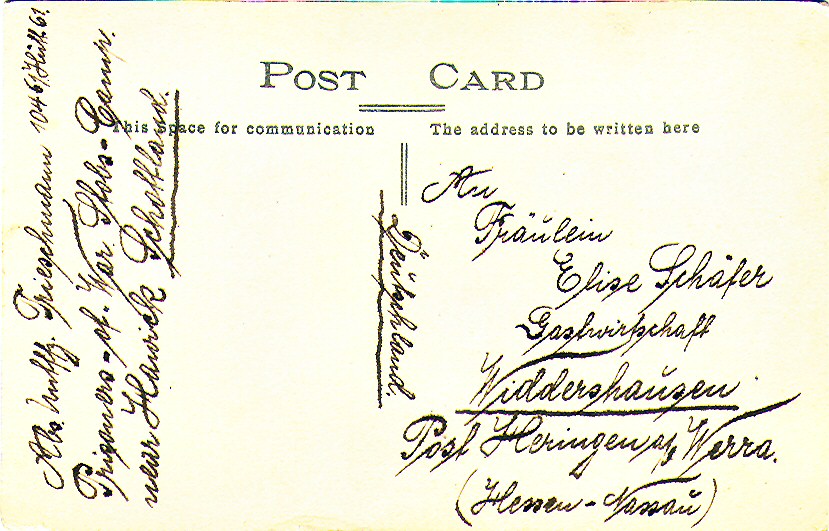 POST CARD
This space for communication
The address to be written here
An
Fräulein
Elise Schäfer
Gastwirtschaft
Widdershausen
Post Heringen a/ Werra.
(Hessen-Nassau)
Deutschland.
Abs. Untffz. Trieschmann 1046, Hütt. 61.
Prisoners-of-War Stobs-Camp.
near Hawick Schottland.